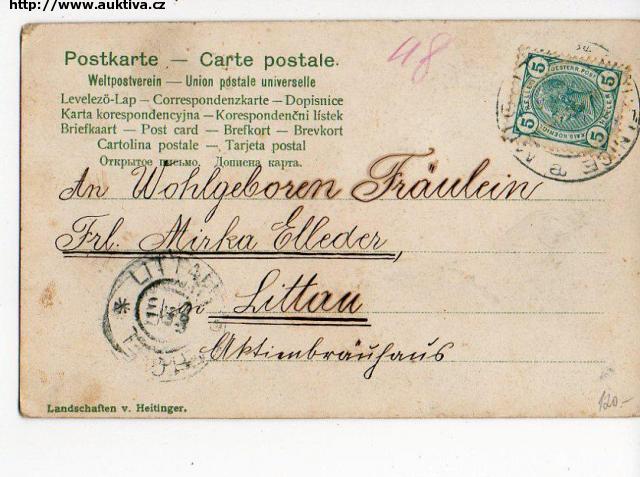 http://www.auktiva.cz
48
Postkarte — Carte postale.
Weltpostverein — Union postale universelle
Levelező-Lap — Correspondenzkarte — Dopisnice
Karta korespondencyjna — Korespondenční lístek
Briefkaart — Post card — Brefkort — Brevkort
Cartolina postale — Tarjeta postal
Открытое письмо. Дописна карта.
5 5
5 5
An Wohlgeboren Fräulein
Frl. Mirka Elleder,
LITTAU
in Littau
Aktienbräuhaus
Landschaften v. Heitinger.
120-